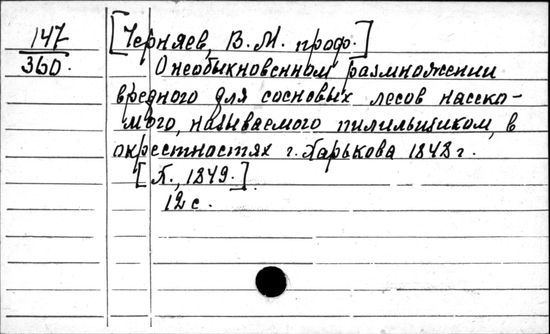 147
360.
[Черняев, В. М. проф.]
О необыкновенном размножении
вредного для сосновых лесов насеко-
мого, называемого пилильщиком, в
окрестностях г. Харькова 1848 г.
[Х., 1849.]
12 с.